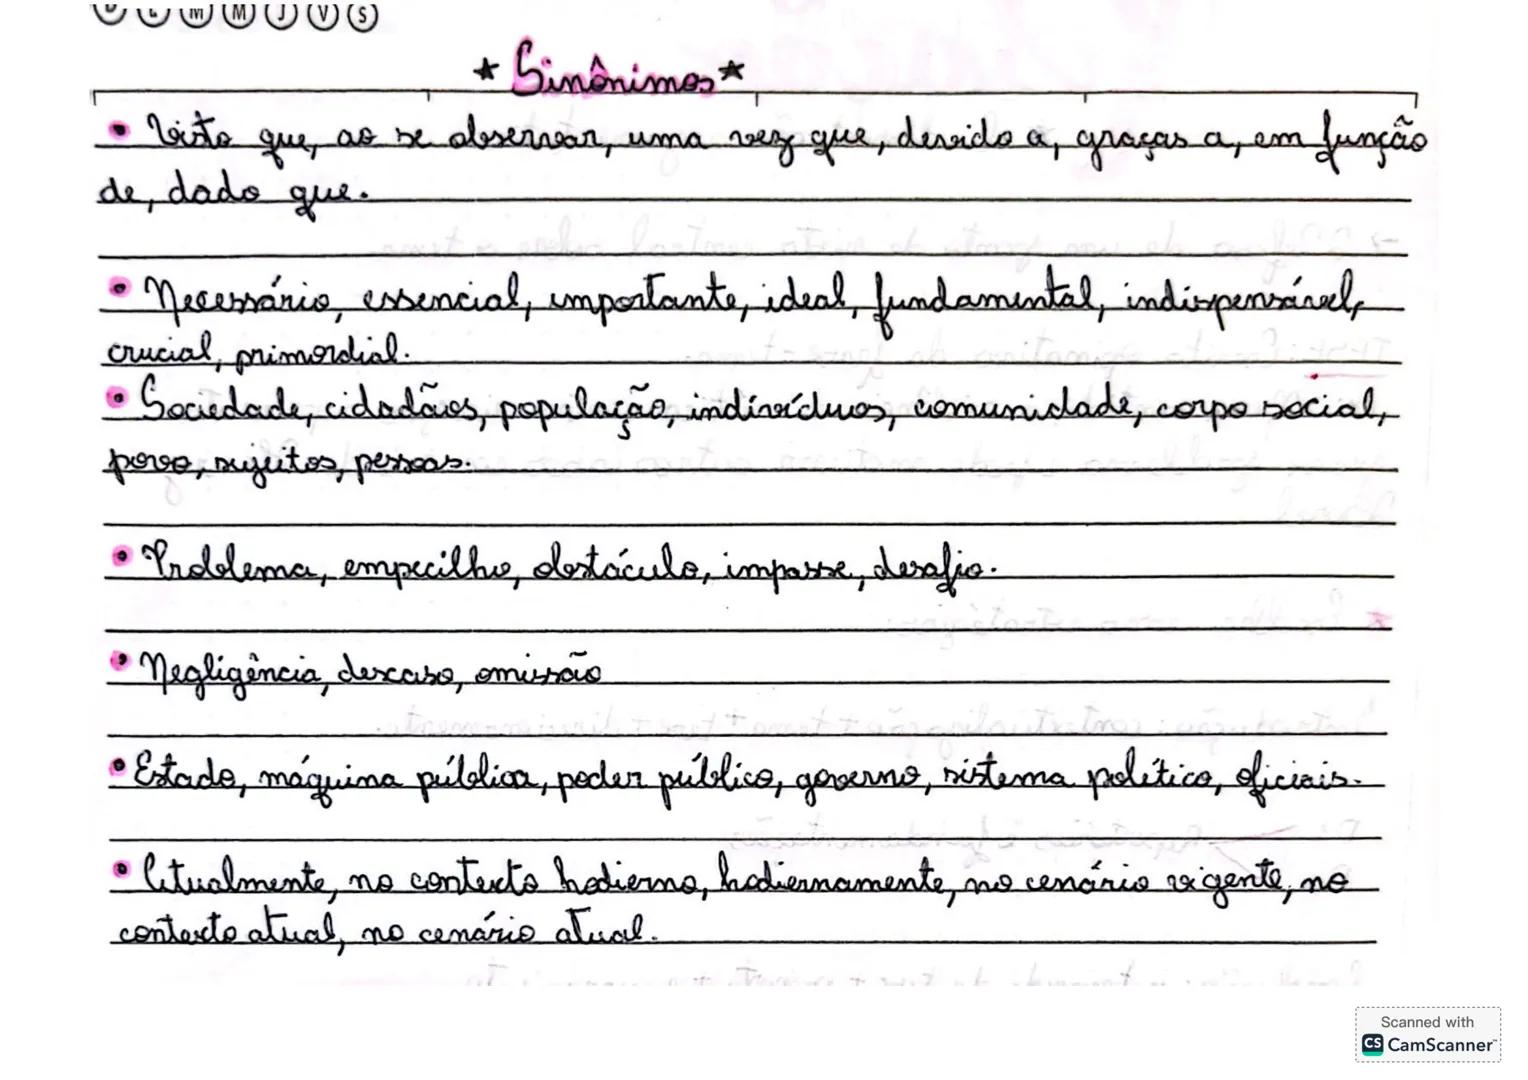 D L M M J V S
★ Sinônimos ★
• Visto que, ao se observar, uma vez que, devido a, graças a, em função
de, dado que.
• Necessário, essencial, importante, ideal, fundamental, indispensável,
crucial, primordial.
• Sociedade, cidadãos, população, indivíduos, comunidade, corpo social,
povo, sujeitos, pessoas.
• Problema, empecilho, obstáculo, impasse, desafio.
• Negligência, descaso, omissão
• Estado, máquina pública, poder público, governo, sistema político, oficiais.
• Atualmente, no contexto hodierno, hodiernamente, no cenário vigente, no
contexto atual, no cenário atual.
Scanned with
CS CamScanner